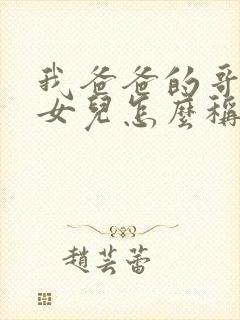 我爸爸的哥
女兒怎麼稱
趙芸蕾